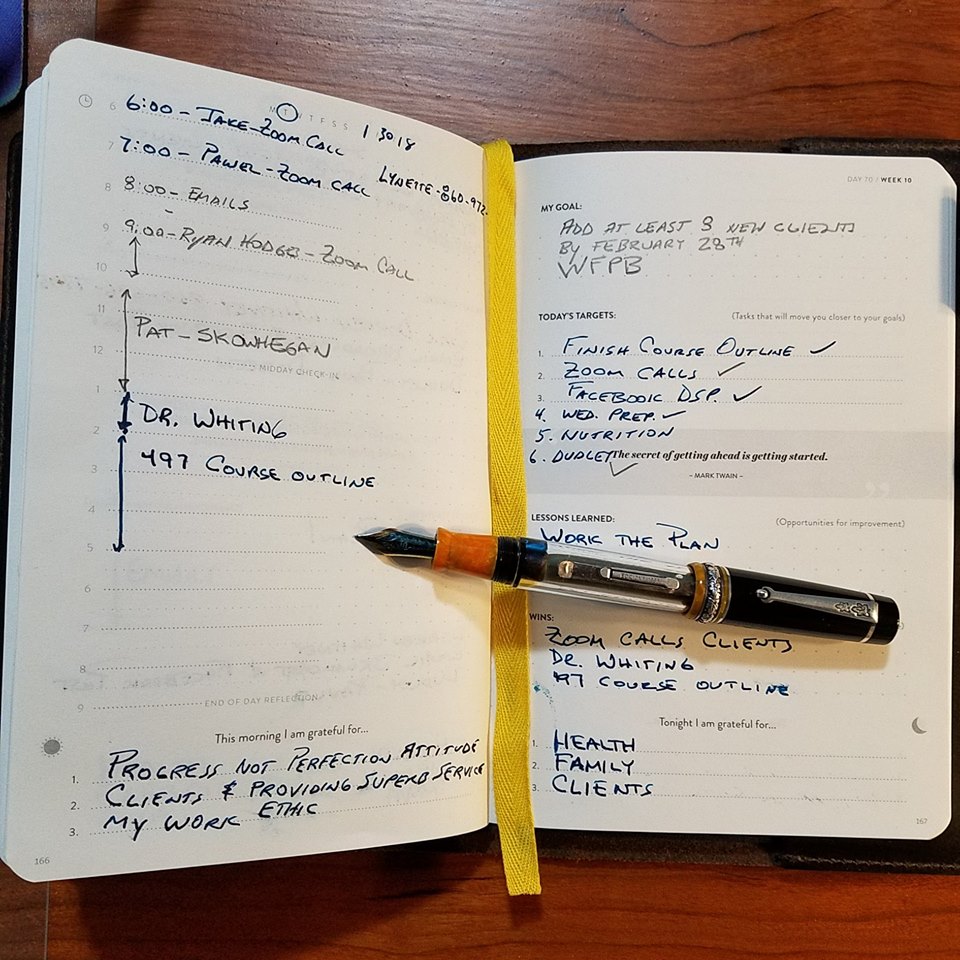 M T W T F S S 1 30 18
6 6:00 - JAKE - ZOOM CALL
7 7:00 - PAWEL - ZOOM CALL
LYNETTE - 860-972-
8 8:00 - EMAILS
9 9:00 - RYAN HODGES - ZOOM CALL
10
11
PAT - SKOWHEGAN
12
MIDDAY CHECK-IN
1
DR. WHITING
2
497 COURSE OUTLINE
3
4
5
6
7
8
END OF DAY REFLECTION
9
This morning I am grateful for...
1. PROGRESS NOT PERFECTION ATTITUDE
2. CLIENTS & PROVIDING SUPERB SERVICE
3. MY WORK ETHIC
166
DAY 70 / WEEK 10
MY GOAL:
ADD AT LEAST 3 NEW CLIENTS
BY FEBRUARY 28TH
WFPB
TODAY'S TARGETS: (Tasks that will move you closer to your goals)
1. FINISH COURSE OUTLINE ✓
2. ZOOM CALLS ✓
3. FACEBOOK DSP. ✓
4. WED. PREP. ✓
5. NUTRITION
6. DUDLEY ✓
The secret of getting ahead is getting started.
– MARK TWAIN –
LESSONS LEARNED: (Opportunities for improvement)
WORK THE PLAN
WINS:
ZOOM CALLS CLIENTS
DR. WHITING
497 COURSE OUTLINE
Tonight I am grateful for...
1. HEALTH
2. FAMILY
3. CLIENTS
167